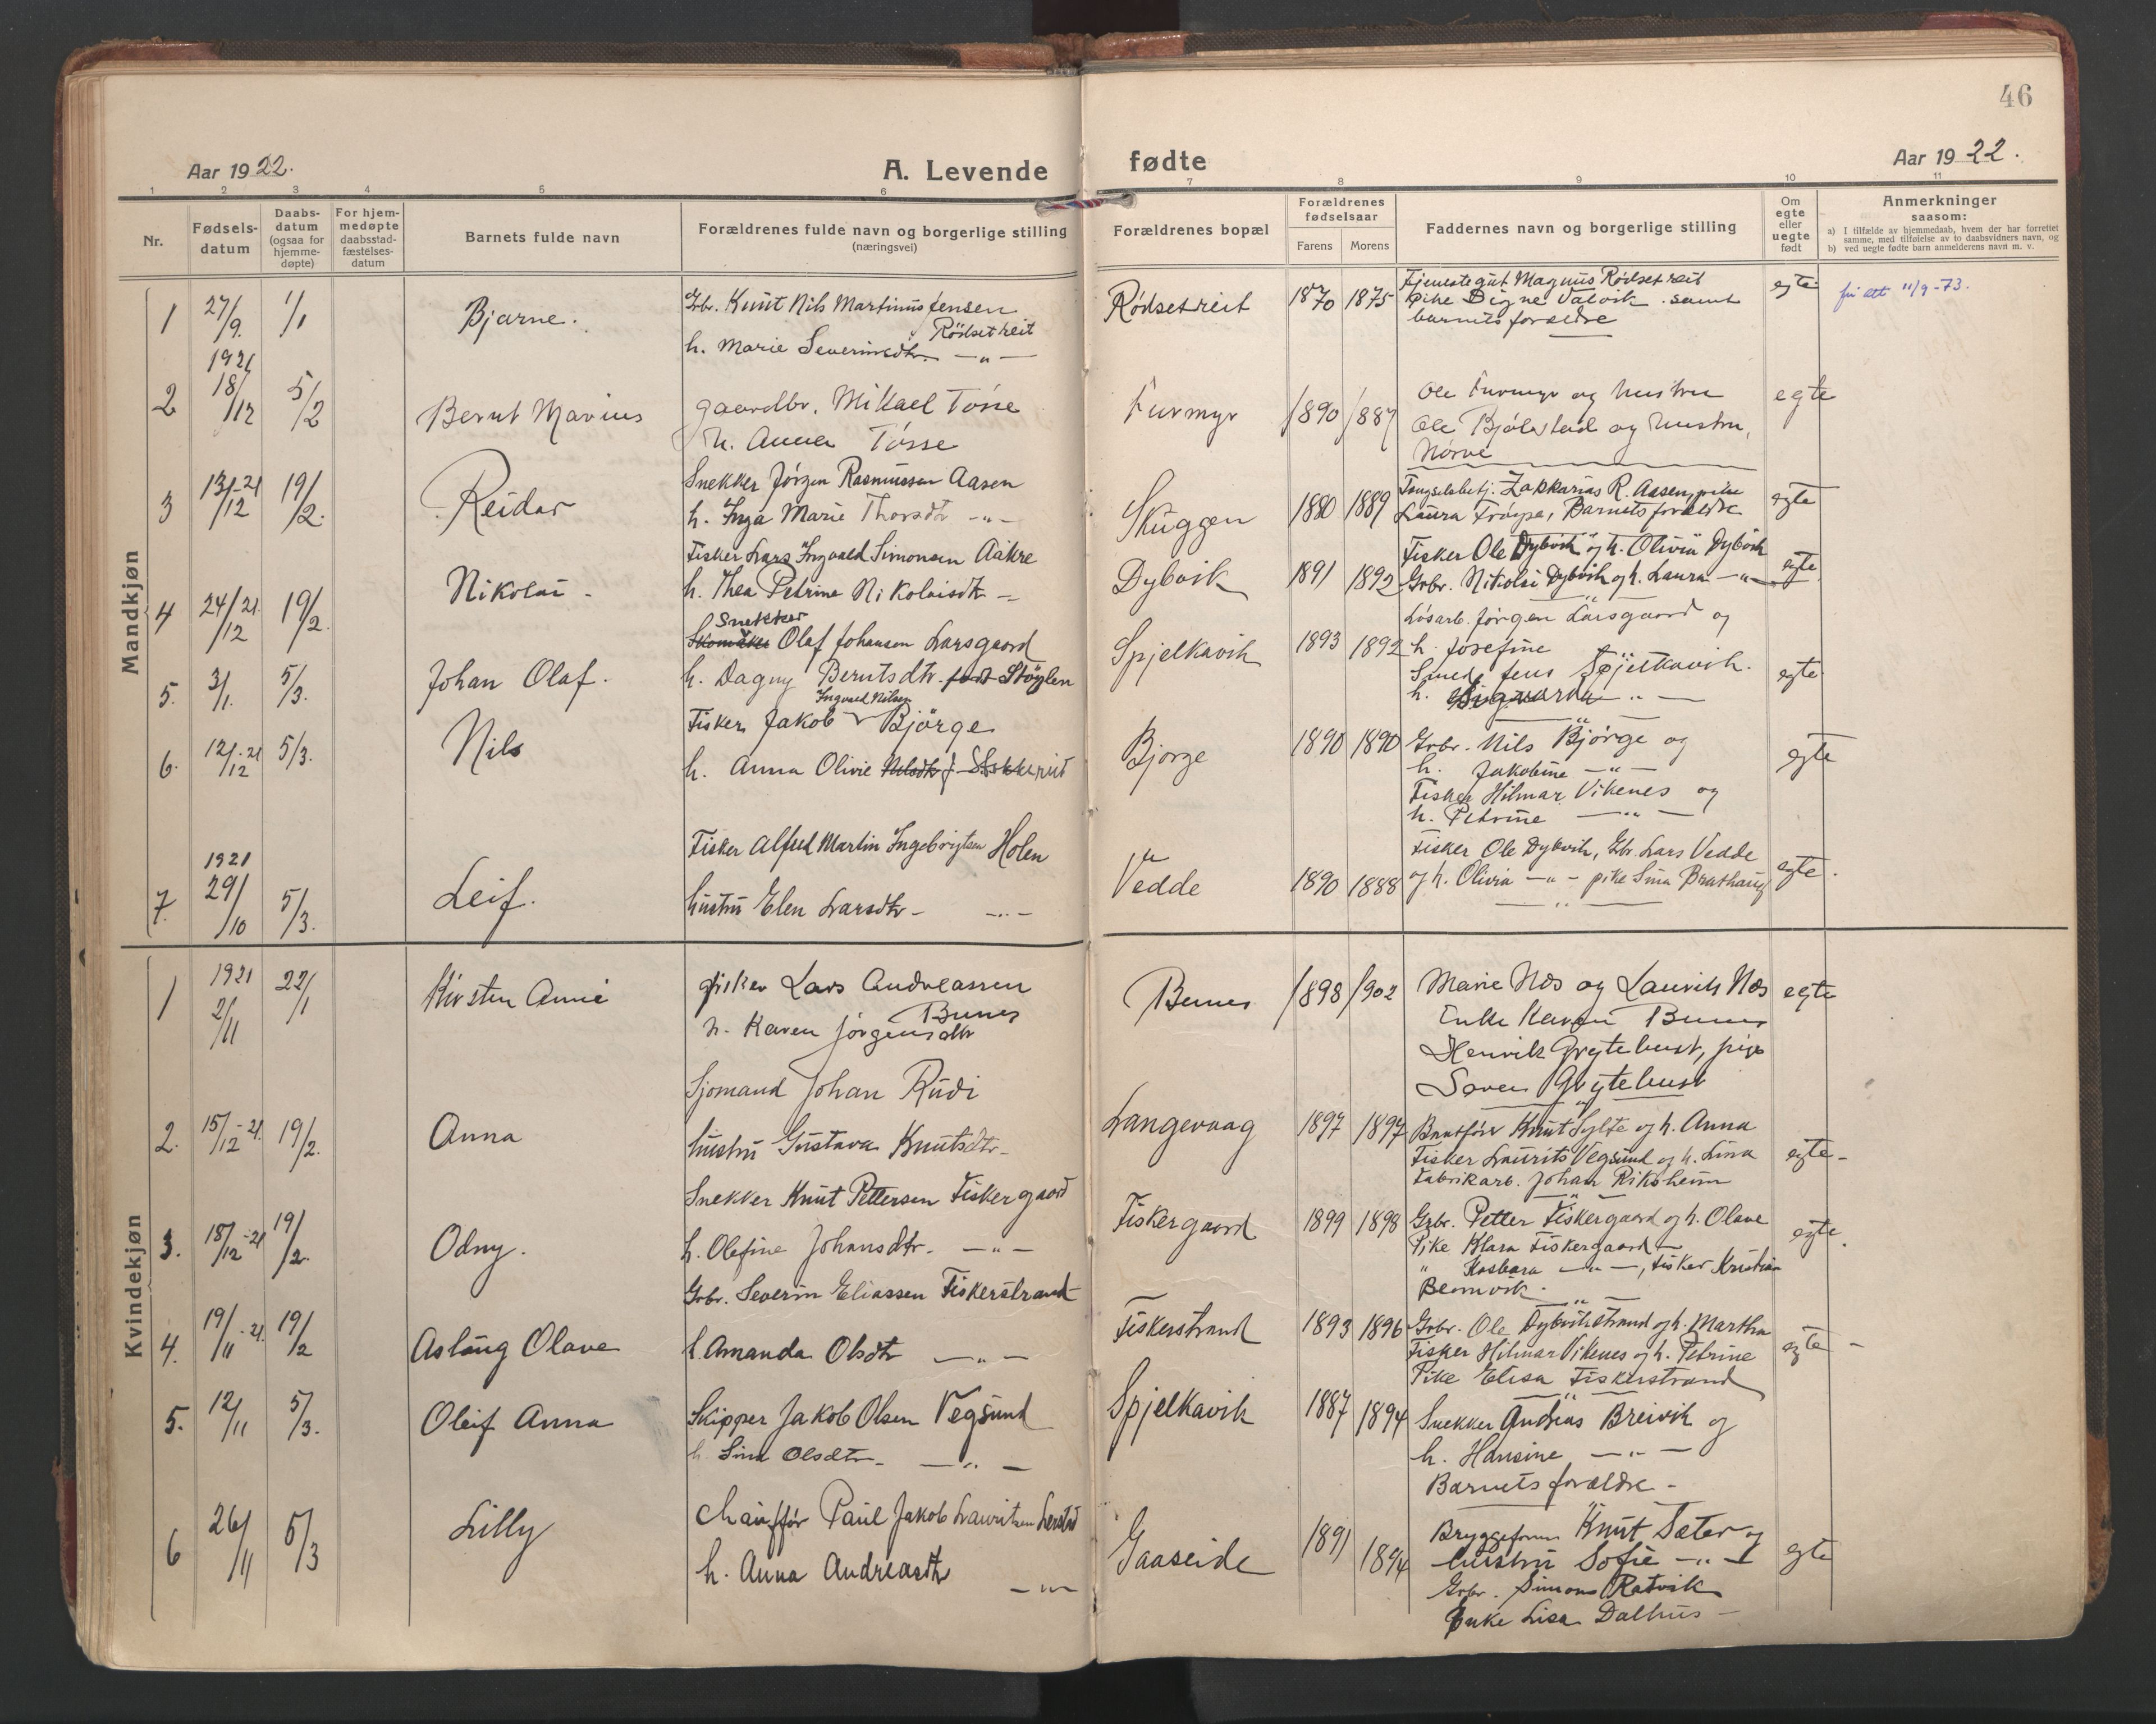 46
Aar 1922.
A. Levende
fødte
Aar 1922.
1 2 3 4 5 6 7 8 9 10 11
Nr.
Fødsels-
datum
Daabs-
datum
(ogsaa for
hjemme-
døpte)
For hjem-
medøpte
daabsstad-
fæstelses-
datum
Barnets fulde navn
Forældrenes fulde navn og borgerlige stilling
(næringsvei)
Forældrenes bopæl
Forældrenes
fødselsaar
Farens Morens
Faddernes navn og borgerlige stilling
Om
egte
eller
uegte
født
Anmerkninger
saasom:
a) I tilfælde av hjemmedaab, hvem der har forrettet
samme, med tilføielse av to daabsvidners navn, og
b) ved uegte fødte barn anmelderens navn m. v.
Mandkjøn
1
27/9.
1921
1/1
Bjarne.
Gbr. Knut Nils Martinus Jensen
Rödsetreit
h. Marie Severinsdtr. —„—
Rødsetreit
1870 1875
Tjenestegut Magnus Rødsetreit
Pike Signe Valvik samt
barnets forældre
egte
fri att 11/9-73.
2
18/12
5/2
Bernt Marius
gaardbr. Mikael Tösse
h. Anna Tösse
Furmyr
1890 1887
Ole Furmyr og hustru
Ole Bjølstad og hustru,
Nørve
egte
3
13/12-21
19/2.
Reidar
Snekker Jörgen Rasmussen Aasen
h. Inga Marie Thorsdtr —„—
Skuggen
1880 1889
Zakkarias R. Aasen, pike
Laura , Barnets forældre
egte
4
24/12 21
19/2
Nikolai -
Fisker Lars Ingvald Simonsen Aakre
h. Thea Petrine Nikolaisdtr —
Dybvik
1891 1892
Fisker Ole Dybvik og h. Olivia Dybvik
Grbr. Nikolai Dybvik og h. Laura —„—
egte
5.
3/1.
5/3.
Johan Olaf.
Snekker
Skomaker Olaf Johansen Larsgaard
h. Dagny Berntsdtr. født Stöylen
Spjelkavik
1893 1892
Løsarb. Jørgen Larsgaard og
h. Josefine —„—
Smed Jens Spjelkavik.
h. —„—
egte
6.
12/12-21
5/3.
Nils
Ingvald Nilsen
Fisker Jakob Bjørge
h. Anna Olivie Nilsdtr f.
Bjorge
1890 1890
Grbr. Nils Bjørge og
h. Jakobine —„—
Fisker Hilmar Vikenes og
h. Petrine —„—
egte
7.
1921
29/10
5/3.
Leif.
Fisker Alfred Martin Ingebrigtsen Holen
hustru Elen Larsdtr - —„—
Vedde
1890 1888
Fisker Ole Dybvik, Gbr. Lars Vedde
og h. Olivia —„— pike Sina Brathaug
egte.
Kvindekjøn
1
1921
2/11
22/1
Kirsten Annie
fisker Lars Andreassen
Bunes
h. Karen Jörgensdtr
Bunes
1898 1902
Marie Næs og Laurits Næs
Enke Karen Bunes
Henrik Grytebust, pige
Grytebust
egte
2.
15/12-21.
19/2.
Anna
Sjomand Johan Rudi
hustru Gustava Knutsdtr-
Langevaag
1897 1897
Knut Sylte og h. Anna
Fisker Laurits Vegsund og h. Lina
Fabrikarb. Johan Riksheim
egte-
3.
18/12-21
19/2.
Odny.
Snekker Knut Pettersen Fiskergaard
h. Olefine Johansdtr. —„—
Fiskergaard
1899 1898
Grbr. Petter Fiskergaard og h. Olave
Pike Klara Fiskergaard —
„ Kasbara —„—, fisker Kristian
egte.
4.
19/11-21.
19/2
Aslaug Olave
Grbr. Severin Eliassen Fiskerstrand
h Amanda Olsdtr —„—
Fiskerstrand
1893 1896
Grbr. Ole Dybvikstrand og h. Martha
Fisker Hilmar Vikenes og h. Petrine
Pike Elisa Fiskerstrand
egte -
5.
12/11
5/3.
Oleif Anna
Skipper Jakob Olsen Vegsund
h Lina Olsdtr- —„—
Spjelkavik
1887 1894
Snekker Andreas Breivik og
h. Hansine —„—
Barnets forældre -
6
26/11
5/3
Lilly
Chaufför Paul Jakob Lauritsen Lerstad
h. Anna Andreasdtr —„—
Gaaseide
1891 1894
Bryggeform Knut Sæter og
hustru Sofie —„—
Grbr. Simons Ratvik
Enke Lisa Dalhus —
egte